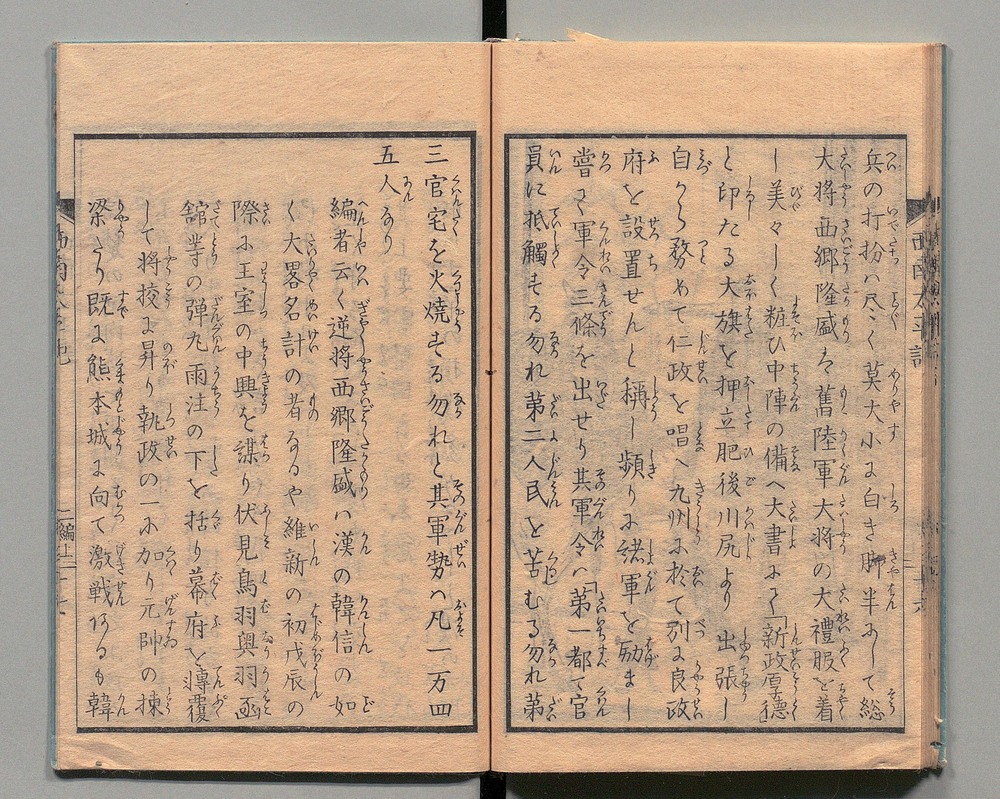 兵の打扮ハ尽く莫大小に白き脚半にして総
大将西郷隆盛ハ舊陸軍大将の大禮服を着
し美々しく粧ひ中陣の備へ大書に曰「新政厚徳
と印たる大旗を押立肥後川尻より出張し
自から務めて仁政を唱へ九州に於て別に良政
府を設置せんと稱し頻りに諸軍を励まし
嘗て軍令三條を出せり其軍令ハ「第一都て官
員に抵觸する勿れ第二人民を苦むる勿れ第
三官宅を火焼する勿れと其軍勢ハ凡一万四
五人なり
編者云く逆将西郷隆盛ハ漢の韓信の如
く大畧名計の者なるや維新の初戊辰の
際に王室の中興を謀り伏見鳥羽奥羽函
舘等の弾丸雨注の下を括り幕府を轉覆
して将校に昇り執政の一に加り元帥の棟
梁たり既に熊本城に向て激戦あるも韓
西南太平記
二編上